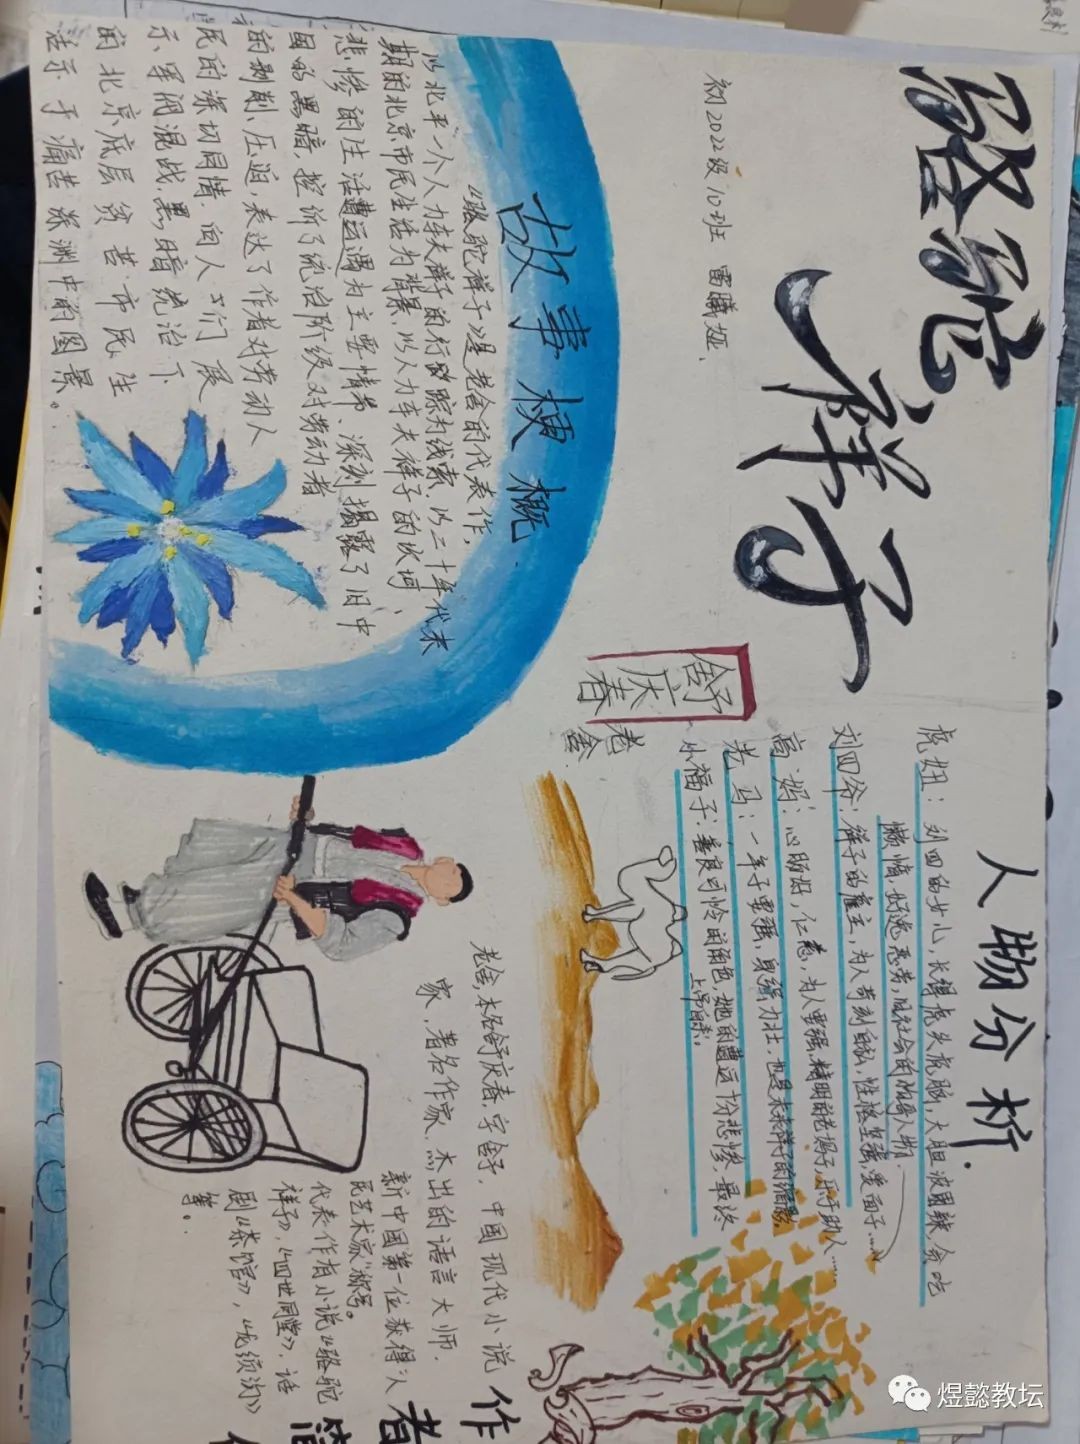 骆驼
祥子
初2022级10班 雷曦娅
故事梗概
《骆驼祥子》是老舍的代表作,
以北平一个人力车夫祥子的行踪为线索、以二十年代末
期的北京市民生活为背景、以人力车夫祥子的坎坷、
悲惨的生活遭遇为主要情节、深刻揭露了旧中
国的黑暗,控诉了统治阶级对劳动者
的剥削、压迫,表达了作者对劳动人
民的深切同情,向人们展
示军阀混战、黑暗统治下
的北京底层贫苦市民生
活于痛苦深渊中的图景。
舒庆春
老舍
人物分析.
虎妞:刘四的女儿,长得虎头虎脑,大胆泼辣,贪吃
懒惰,好逸恶劳,旧社会的侮辱人物.
刘四爷:祥子的雇主,为人苛刻自私,性格坚强,爱面子……
高妈:心眼好,仁慈,为人要强,精明的老妈子,乐于助人……
老马:一辈子要强,身强力壮,也是未来祥子的缩影
小福子:善良可怜的角色,她的遭遇十分悲惨,最终
上吊自杀!
老舍,本名舒庆春,字舍予,中国现代小说
家、著名作家,杰出的语言大师.
新中国第一位获得“人
民艺术家”称号。
代表作有小说《骆驼
祥子》,《四世同堂》,话
剧《茶馆》,《龙须沟》
等。
作
者
简
煜懿教坛